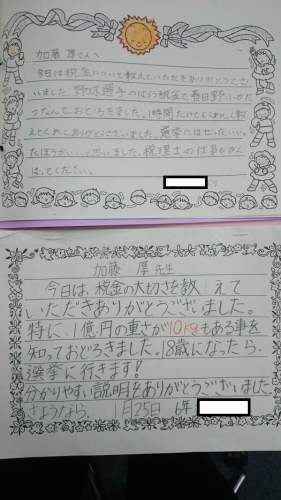 加藤 厚さんへ
今日は税金について教えていただきありがとうござ
いました。野球選手のはらう税金と春日野
なんて、おどろきました。1時間だけでもくわしく教
えてくれてありがとうございました。選挙にはぜったいい
たほうがいい
いました。税理士の仕事もがん
ばってください。
加藤 厚先生
今日は、税金の大切さを教えて
いただきありがとうございました。
特に、1億円の重さが10kgもある事を
知っておどろきました。18歳になったら、
選挙に行きます!
分かりやすい説明をありがとうございました
さようなら。 1月25日 6年